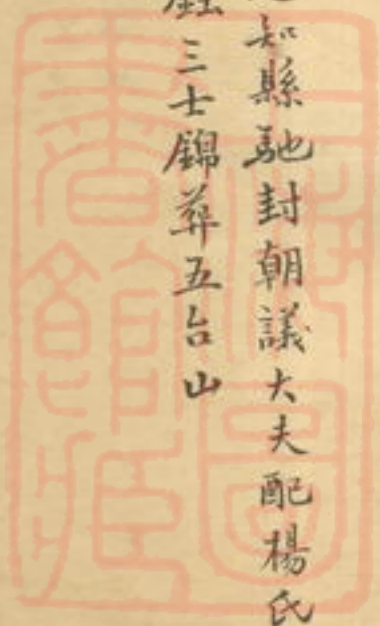 知縣馳封朝議大夫配楊氏
三士錦葬五台山